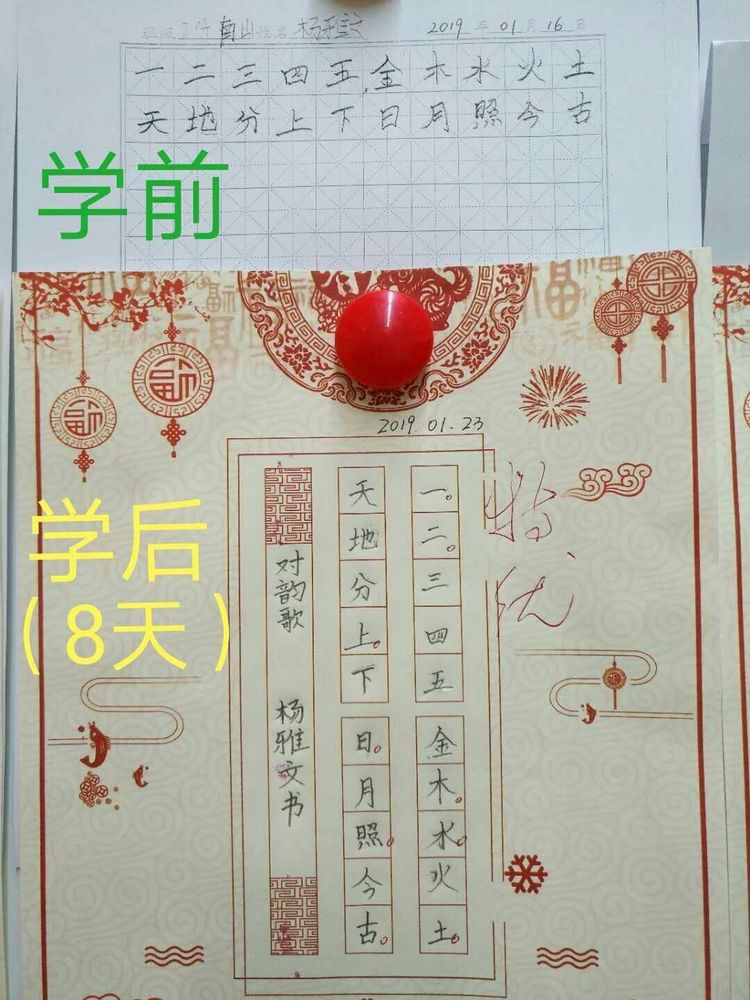 南山 姓名 杨雅文 2019年01月16日
一二三四五金木水火土
天地分上下日月照今古
学前
2019.01.23
学后
(8天)
特优
一二三四五
金木水火土
天地分上下
日月照今古
对韵歌 杨雅文书